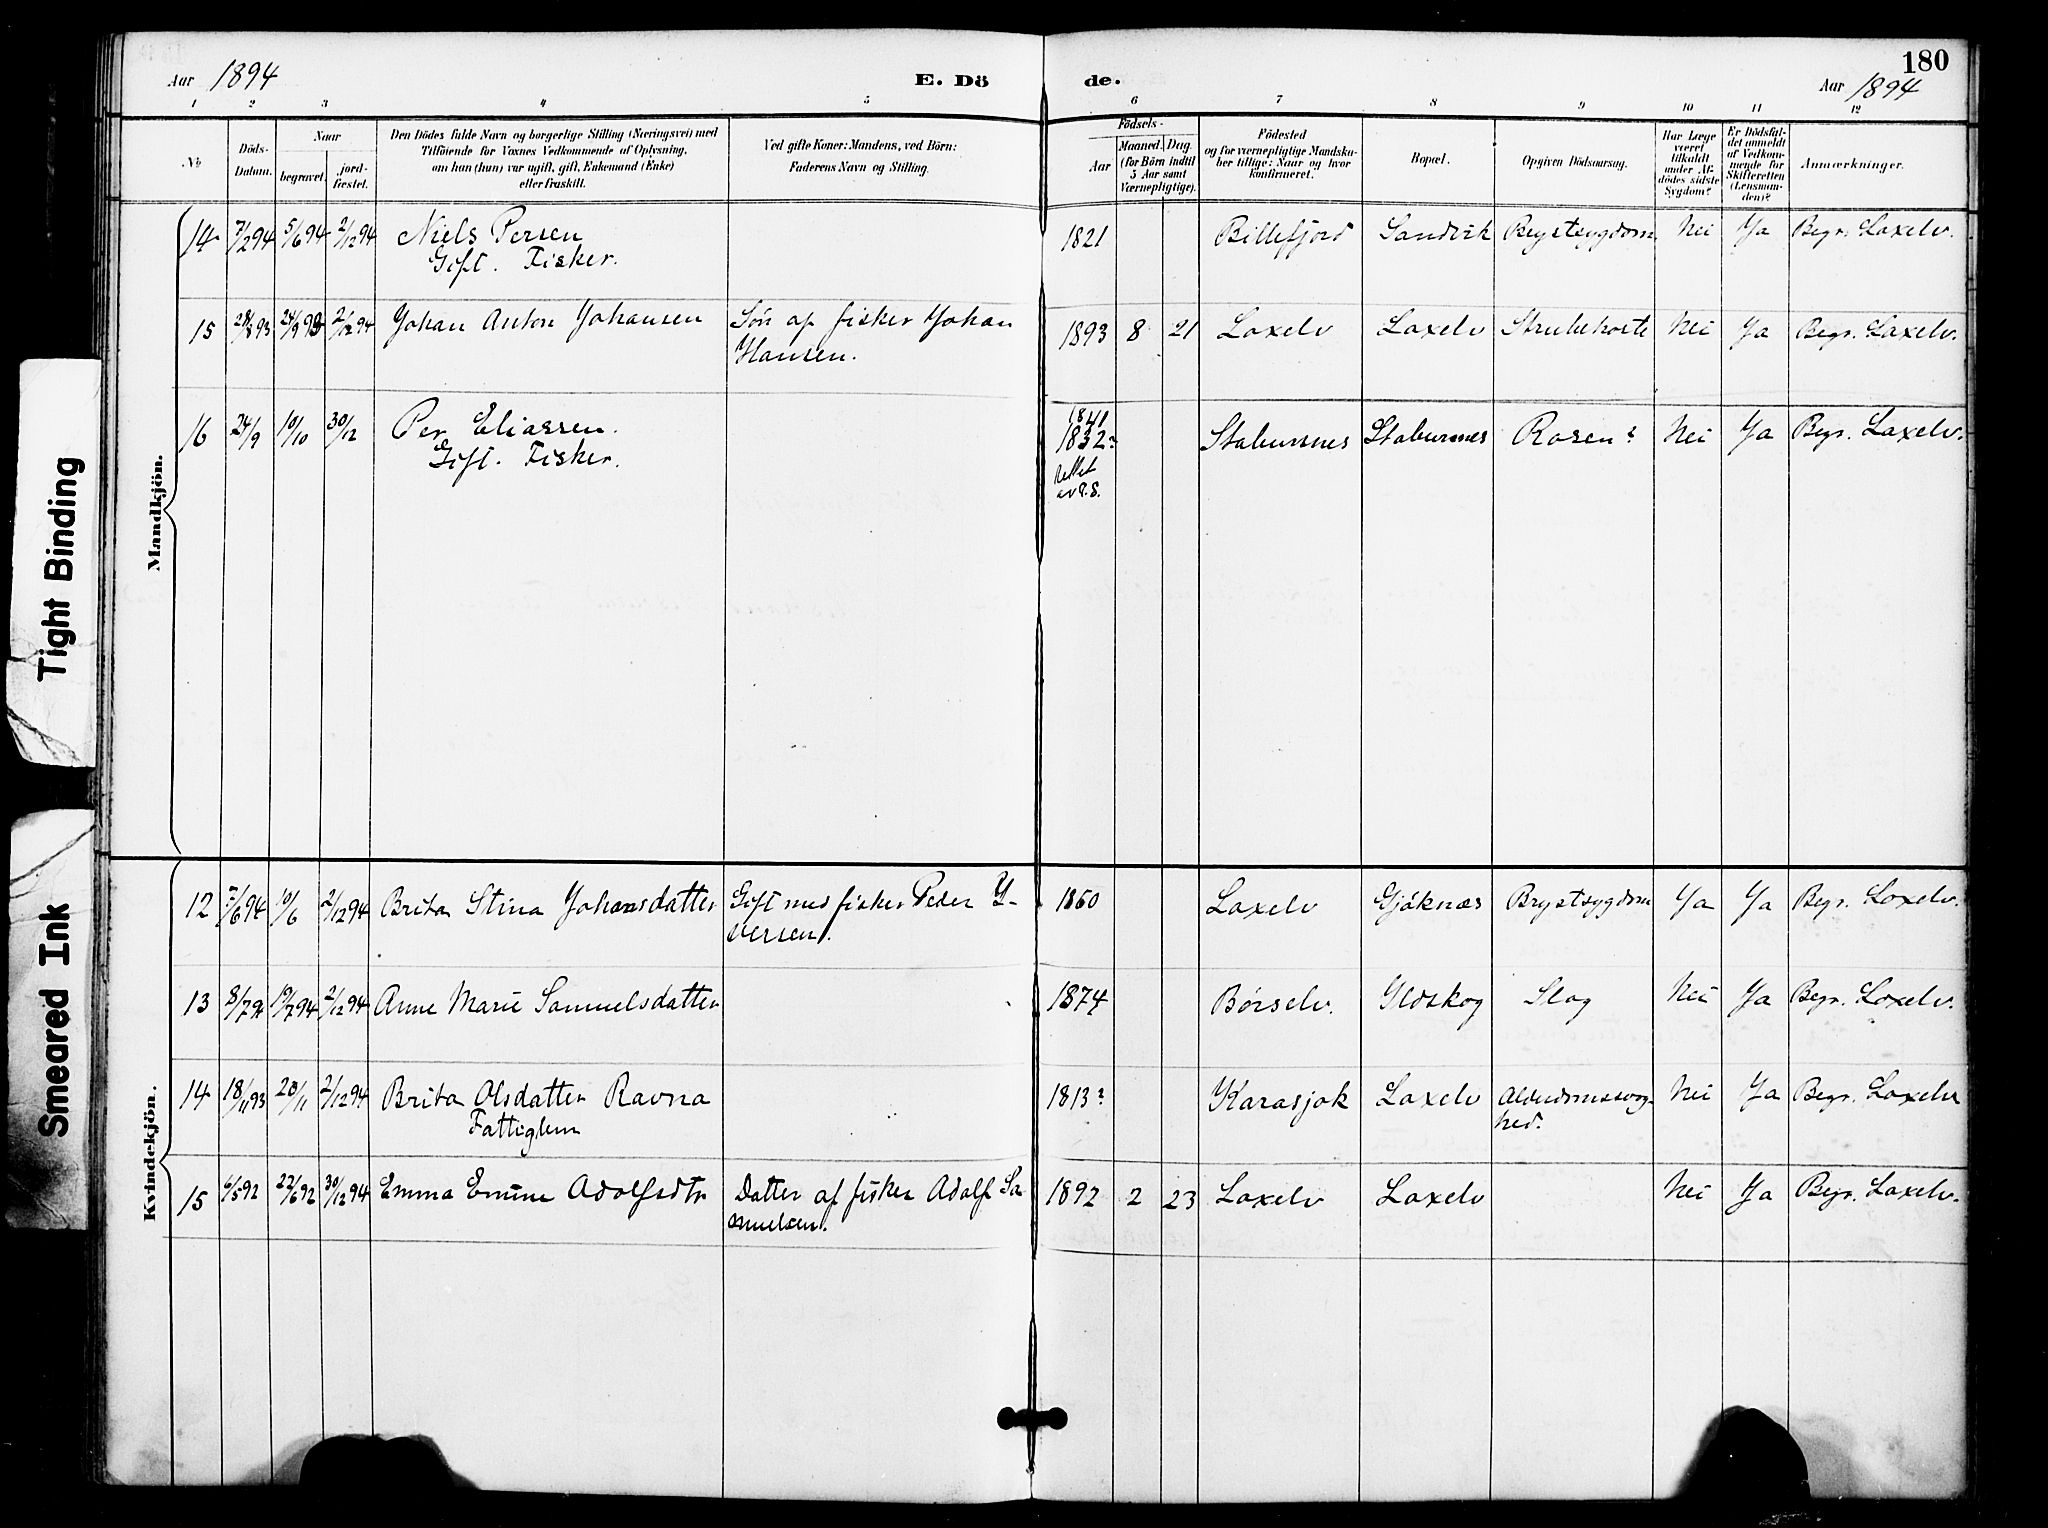 180
Aar 1894
E. Dö
de.
Aar 1894
1 2 3 4 5 6 7 8 9 10 11 12
No
Döds-
Datum.
Naar
begravet.
jord-
fæstet.
Den Dödes fulde Navn og borgerlige Stilling (Næringsvei) med
Tilföiende for Voxnes Vedkommende af Oplysning,
om han (hun) var ugift, gift, Enkemand (Enke)
eller fraskilt.
Ved gifte Koner: Mandens, ved Börn:
Faderens Navn og Stilling.
Födsels-
Aar
Maaned. Dag.
(for Börn indtil
5 Aar samt
Værnepligtige).
Födested
og for værnepligtige Mandska-
ber tillige: Naar og hvor
konfirmeret.
Bopæl.
Opgiven Dödsaarsag.
Har Læge
været
tilkaldt
under Af-
dödes sidste
Sygdom?
Er Dödsfal-
det anmeldt
af Vedkom-
mende for
Skifteretten
(Lensman-
den)?
Anmærkninger.
Mandkjön.
14 7/2 94 5/6 94 2/12 94 Niels Persen 1821 Billefjord Sandvik Brystsygdom Nei Ja Begr. Laxelv.
Gift. Fisker.
15 28/8 93 24/9 93 2/12 94 Johan Anton Johansen Søn af fisker Johan 1893 8 21 Laxelv Laxelv Strubehoste Nei Ja Begr. Laxelv.
Hansen.
1841
16 24/9 10/10 30/12 Per Eliassen. 1832? Stabursnes Stabursnes Rosen? Nei Ja Begr. Laxelv.
Gift. Fisker.
Rettet
av P.S.
Kvindekjön.
12 7/6 94 10/6 2/12 94 Brita Stina Johansdatter Gift med fisker Peder I- 1860 Laxelv Gjøknæs Brystsygdom Ja Ja Begr. Laxelv.
versen.
13 8/7 94 19/7 94 2/12 94 Anne Marie Samuelsdatter 1874 Børselv. Ildskog Slag Nei Ja Begr. Laxelv.
14 18/11 93 20/11 2/12 94 Brita Olsdatter Ravna 1813? Karasjok Laxelv Alderdomssvag- Nei Ja Begr. Laxelv
Fattiglem hed.
15 6/5 92 22/6 92 30/12 94 Emma Emine Adolfsdtr Datter af fisker Adolf Sa 1892 2 23 Laxelv Laxelv Nei Ja Begr. Laxelv.
muelsen.
Tight Binding
Smeared Ink